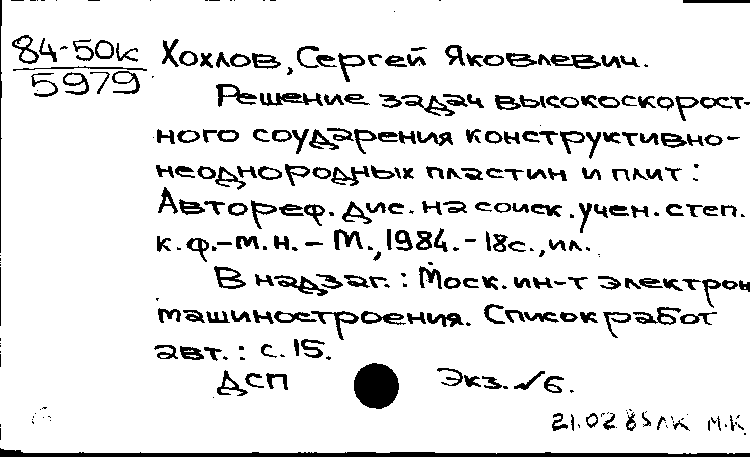 84-50к
5979
Хохлов, Сергей Яковлевич.
Решение задач высокоскорост-
ного соударения конструктивно-
неоднородных пластин и плит :
Автореф. дис. на соиск. учен. степ.
к. ф.-м. н. - М., 1984. - 18с., ил.
В надзаг. : Моск. ин-т электрон
машиностроения. Список работ
авт. : с. 15.
ДСП Экз. √6.
21.02 85 ЛК М.К